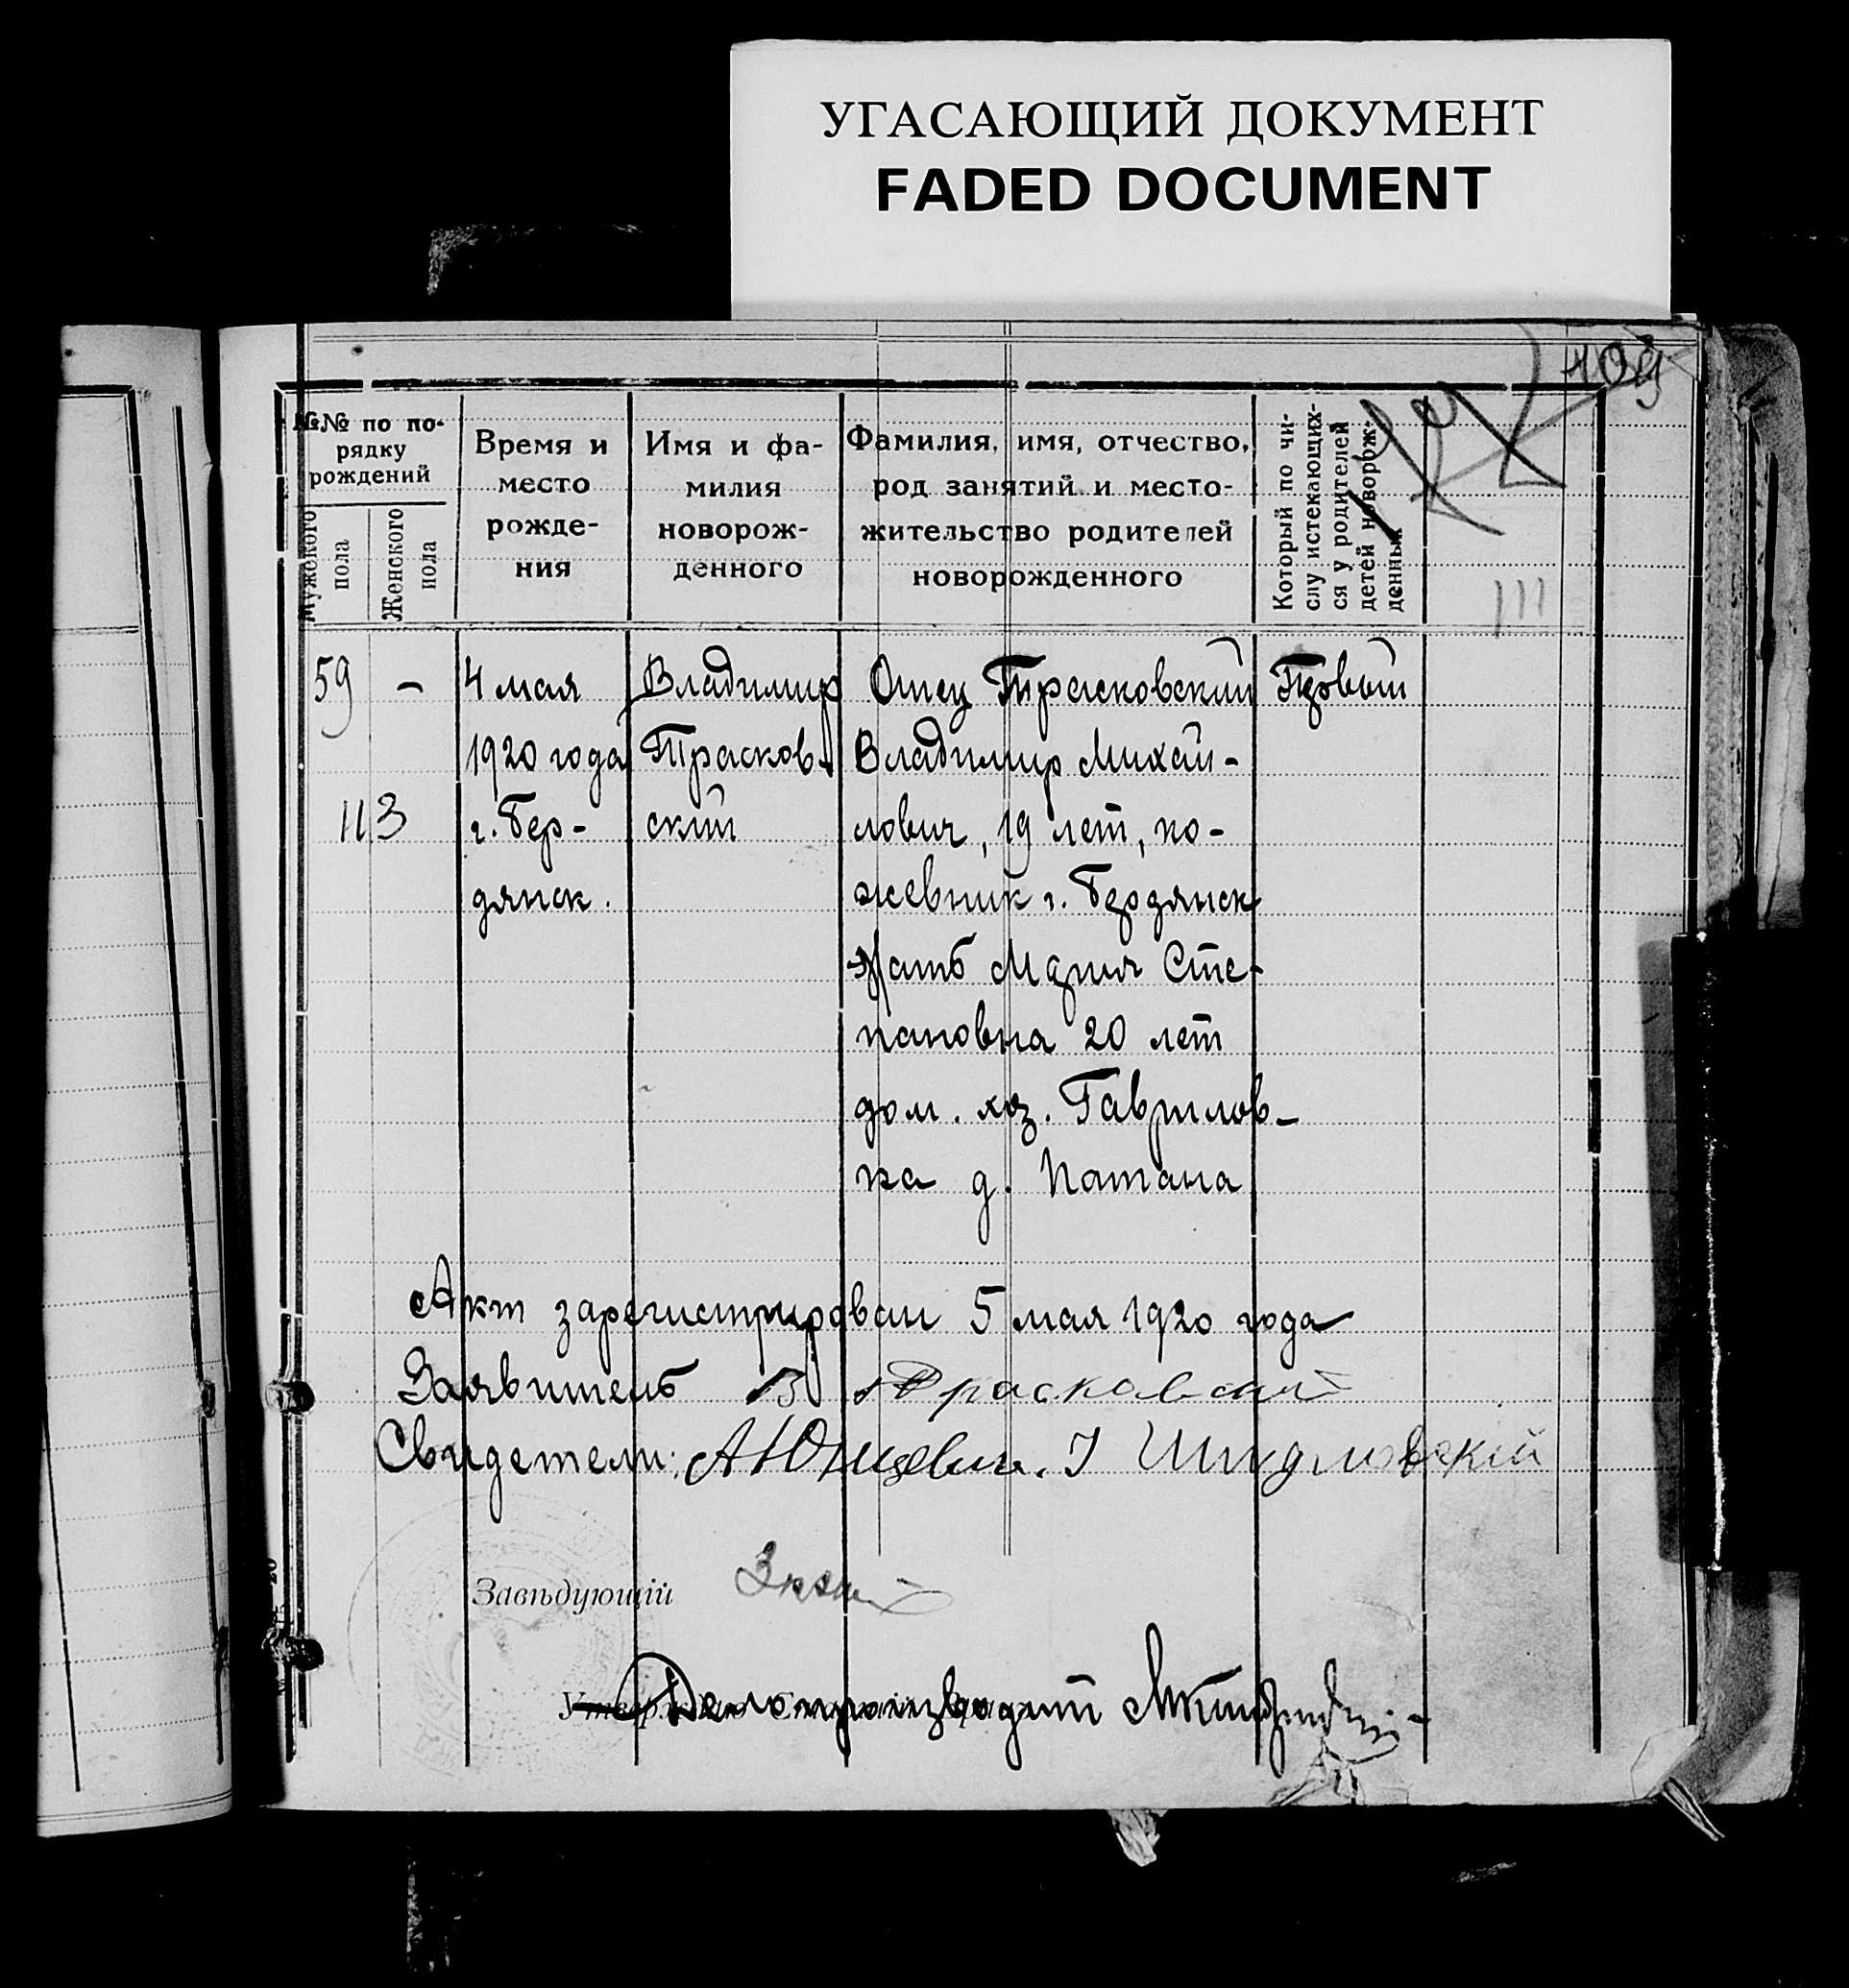 УГАСАЮЩИЙ ДОКУМЕНТ
FADED DOCUMENT
109
№№ по по-
рядку
рождений
Мужеского
пола
Женского
пола
Время и
место
рожде-
ния
Имя и фа-
милия
новорож-
денного
Фамилия, имя, отчество,
род занятий и место-
жительство родителей
новорожденного
Который по чи-
слу истекающих-
ся у родителей
детей новорож-
денных
111
59 – 4 мая Владимир Отец Трасковский Первый
1920 года Трасков- Владимир Михай-
113 г. Бер- ский лович, 19 лет, ко-
дянск. жевник г. Бердянск
Мать Мария Сте-
пановна 20 лет
дом. хоз. Гаврилов-
ка д. Патана
Акт зарегистрирован 5 мая 1920 года
Заявитель В Трасковский
Свидетели: А
Завѣдующій
Делопроизводит